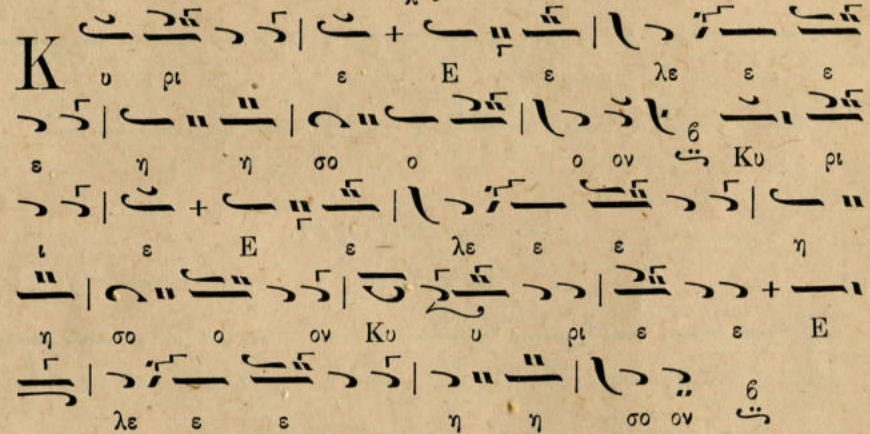 Κ υ ρι ε Ε ε λε ε ε
ε η η σο ο ο ον Κυ ρι
ι ε Ε ε λε ε ε η
η σο ο ον Κυ υ ρι ε ε Ε
λε ε ε η η σο ον